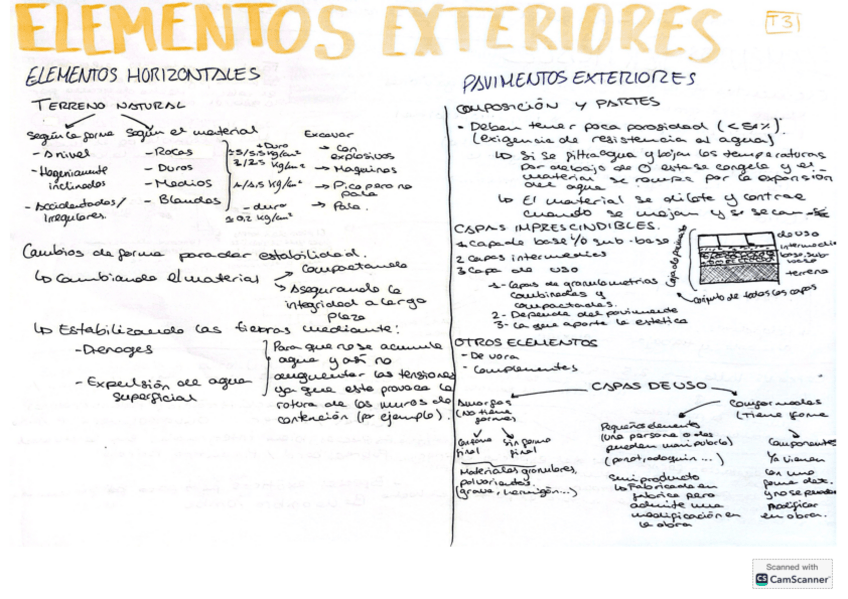 ELEMENTOS EXTERIORES
T3
ELEMENTOS HORIZONTALES
TERRENO NATURAL
Según la forma
- A nivel
- Hogeniamente
inclinados
- Accidentados/
Irregulares.
Según el material
- Rocas
- Duros
- Medios
- Blandos
+ Duro
- duro
Excavar
→ con
explosivos
→ Maquinas
→ Pico pero no
pala
→ Pala.
Cambios de forma para dar estabilidad.
↳ Cambiando el material
→ Compactando
→ Asegurando la
integridad a largo
plazo
↳ Estabilizando las tierras mediante:
- Drenages
- Expulsión de agua
superficial
Para que no se acumule
agua y así no
augmentar las tensiones
ya que esto provoca la
rotura de los muros de
contención (por ejemplo).
PAVIMENTOS EXTERIORES
COMPOSICIÓN Y PARTES
- Deben tener poca porosidad (<5%).
(exigencia de resistencia al agua)
↳ Si se filtra agua y bajan las temperaturas
por debajo de 0 esta se congela y el
material se rompe por la expansión
del agua
↳ El material se dilate y contrae
cuando se mojan y si secan
CAPAS IMPRESCINDIBLES.
1 capa de base y/o sub-base
2 Capas intermedias
3 Capa de uso
1- Capas de granulometrias
combinadas y
compactadas.
2- Depende del pavimento
3- La que aporte la estética
de uso
intermedia
base, sub-
base
terreno
conjunto de todas las capas
OTROS ELEMENTOS
- De vora
- Complementos
CAPAS DE USO
Amorfas
(No tiene
forma)
Con forma
final
Sin forma
final
Materiales granulares,
(grava, hormigón...)
Conformadas
(Tiene forma
Pequeños elementos
(una persona o dos
pueden manipularlo)
(panot, adoquin...)
Semiproducto
↳ Fabricado en
fabrica pero
admite una
modificación en
la obra
Componentes
Ya vienen
con una
forma det.
y no se pueden
modificar
en obra.
Scanned with
CS CamScanner